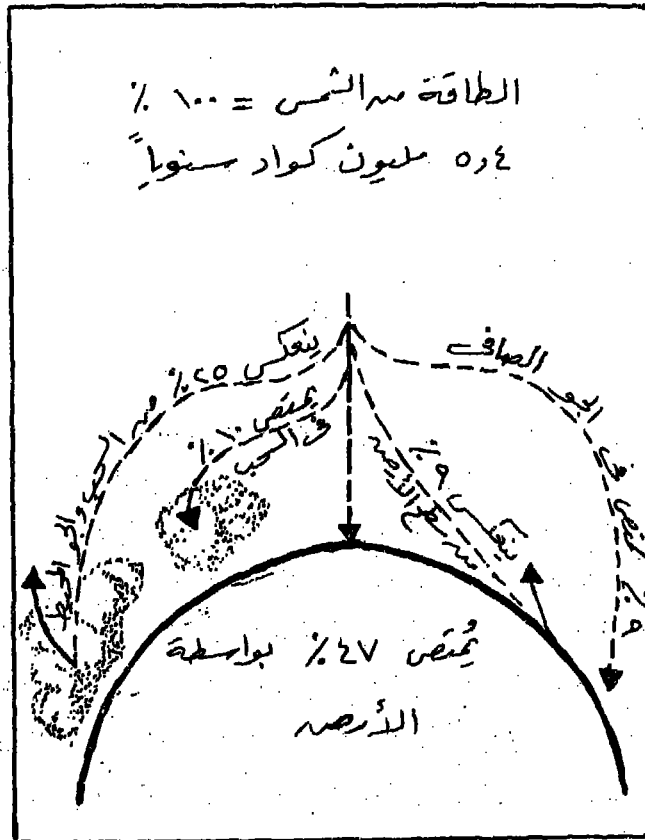 الطاقة من الشمس = ١٠٠ ٪
٥٫٤ مليون كواد سنوياً
ينعكس ٢٥٪ من السحب والجو المحيط
يمتص ١٠٪
في السحب
ينعكس ٩٪
من سطح الأرض
٩٪ تمتص في الجو الصافى
يُمتص ٤٧٪ بواسطة
الأرض